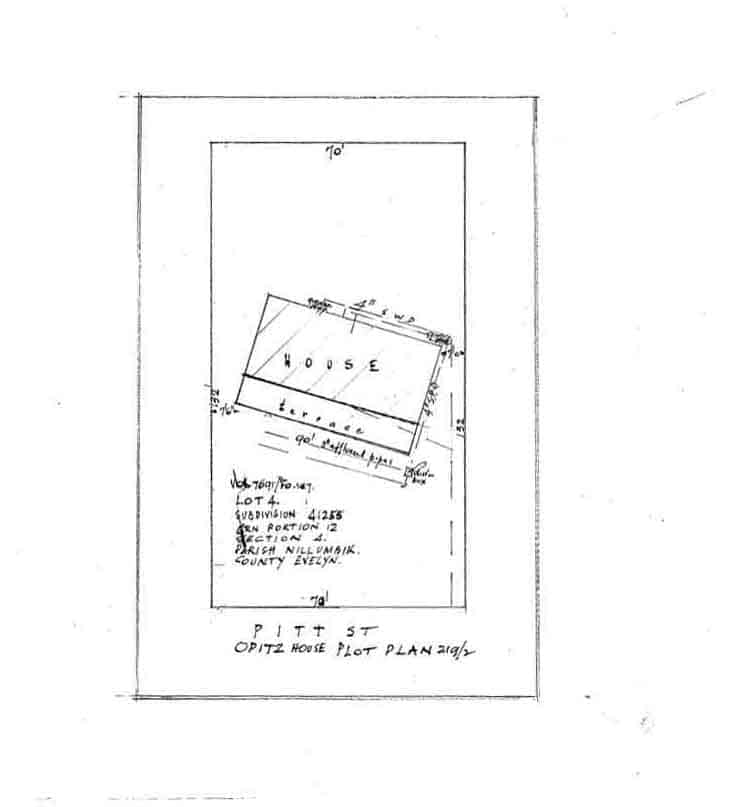 70'
4" S W D
HOUSE
132
7'6"
terrace
4" S.W.D
132
90' 3" effluent pipes
box
Vol. 7691/Fo. 147.
LOT 4.
SUBDIVISION 41255
CRN PORTION 12
SECTION 4.
PARISH NILLUMBIK.
COUNTY EVELYN.
70'
PITT ST
OPITZ HOUSE PLOT PLAN 219/2